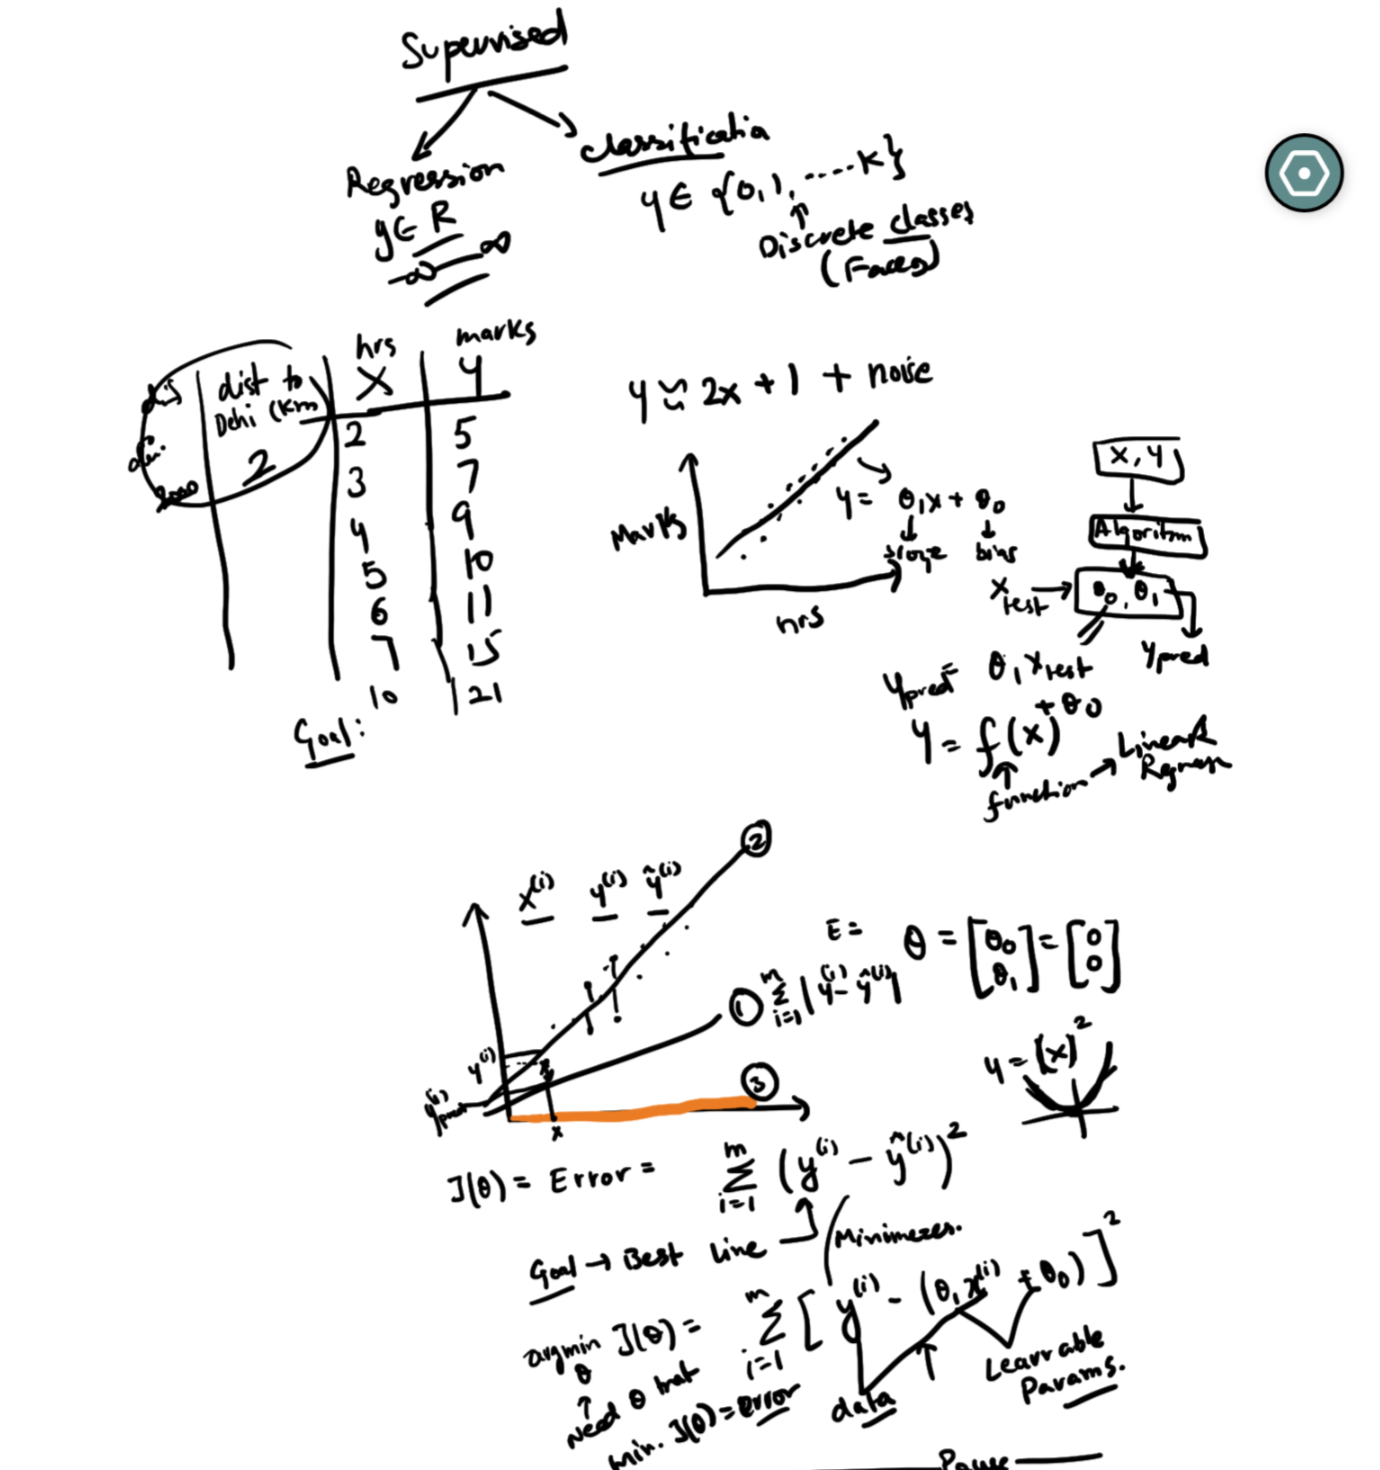 Supervised
Regression
y ∈ R
-∞ ∞
Classificatia
y ∈ {0,1, ..... K}
Discrete classes
(Faces)
dist to
Dehi (Km
2
hrs
X
marks
Y
2 5
3 7
4 9
5 10
6 11
7 15
10 21
Goal:
y ≈ 2x + 1 + noise
Marks
hrs
y = θ₁x + θ₀
slope
bias
X, Y
Algorithm
X test
θ₀, θ₁
Ypred
Ypred = θ₁ Xtest + θ₀
Y = f(x)
function
Linear
Regress
②
x⁽ⁱ⁾ y⁽ⁱ⁾ ŷ⁽ⁱ⁾
①
③
y⁽ⁱ⁾
y⁽ⁱ⁾pred
x
E =
m Σ i=1 |y⁽ⁱ⁾ - ŷ⁽ⁱ⁾|
θ = [θ₀ θ₁] = [0 0]
y = (x)²
J(θ) = Error = m Σ i=1 (y⁽ⁱ⁾ - ŷ⁽ⁱ⁾)²
Goal → Best line
Minimezes.
argmin θ J(θ) = m Σ i=1 [y⁽ⁱ⁾ - (θ₁x⁽ⁱ⁾ + θ₀)]²
Need θ that
min. J(θ) = error
data
Learnable
Params.
Pause